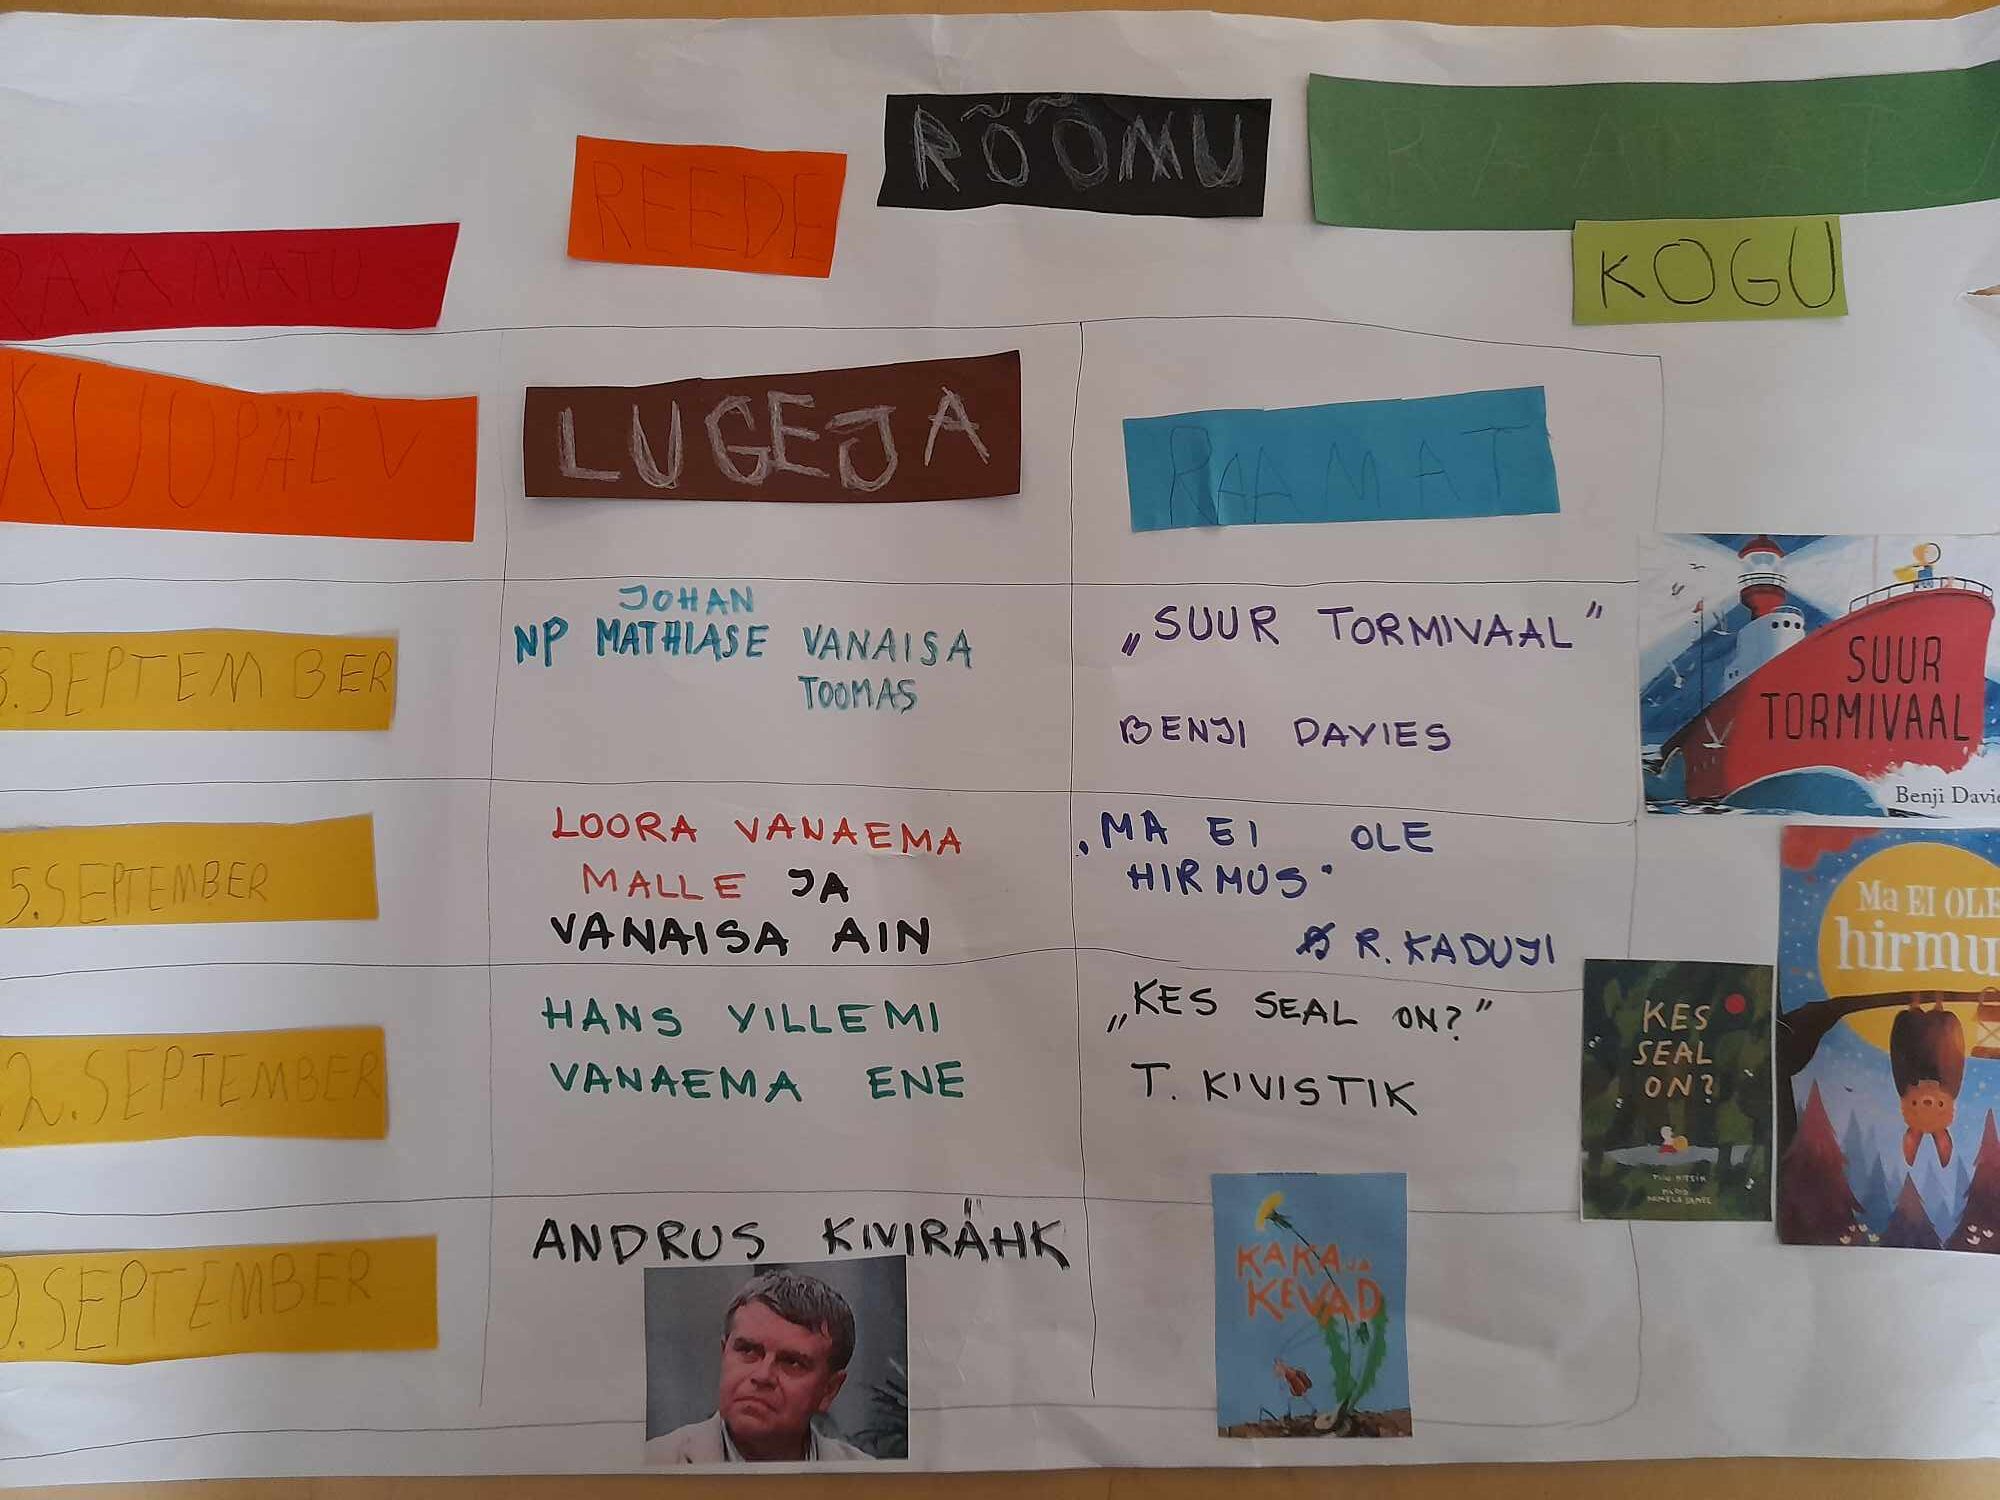 RAAMATU REEDE RÕÕMU RAAMATU
KOGU
KUUPÄEV LUGEJA RAAMAT
8.SEPTEMBER
JOHAN
NP MATHIASE VANAISA
TOOMAS
„SUUR TORMIVAAL”
BENJI DAVIES
SUUR
TORMIVAAL
Benji Davie
5.SEPTEMBER
LOORA VANAEMA
MALLE JA
VANAISA AIN
„MA EI OLE
HIRMUS"
R. KADUJI
Ma EI OLE
hirmu
2.SEPTEMBER
HANS VILLEMI
VANAEMA ENE
„KES SEAL ON?”
T. KIVISTIK
KES
SEAL
ON?
9.SEPTEMBER
ANDRUS KIVIRÄHK
KAKA JA
KEVAD